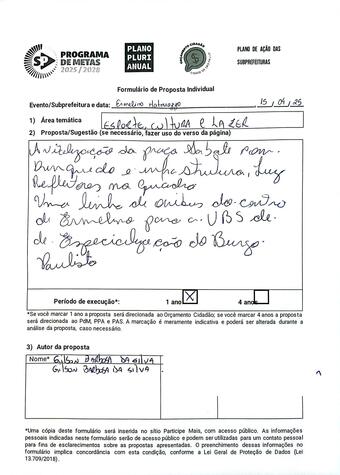 PROGRAMA
DE METAS
2025 / 2028
PLANO
PLURI
ANUAL
PLANO DE AÇÃO DAS
SUBPREFEITURAS
Formulário de Proposta Individual
Evento/Subprefeitura e data: Ermelino Matarazzo 15/04/25
1) Área temática ESPORTE, CULTURA E LAZER
2) Proposta/Sugestão (se necessário, fazer uso do verso da página)
da praça com
Brinquedo e infra strutura, Luz
Refletores na Quadra
Uma linha de onibus do centro
de Ermelino para a UBS de
de Especialização do Burgo
Paulista
Período de execução*: 1 ano X 4 anos
*Se você marcar 1 ano a proposta será direcionada ao Orçamento Cidadão; se você marcar 4 anos a proposta
será direcionada ao PdM, PPA e PAS. A marcação é meramente indicativa e poderá ser alterada durante a
análise da proposta, caso necessário.
3) Autor da proposta
Nome* GILSON BARBOSA DA SILVA
GILSON BARBOSA DA SILVA
*Uma cópia deste formulário será inserida no sítio Participe Mais, com acesso público. As informações
pessoais indicadas neste formulário serão de acesso público e podem ser utilizadas para um contato pessoal
para fins de esclarecimentos sobre as propostas apresentadas. O preenchimento dessas informações no
formulário implica concordância com esta condição, conforme a Lei Geral de Proteção de Dados (Lei
13.709/2018).